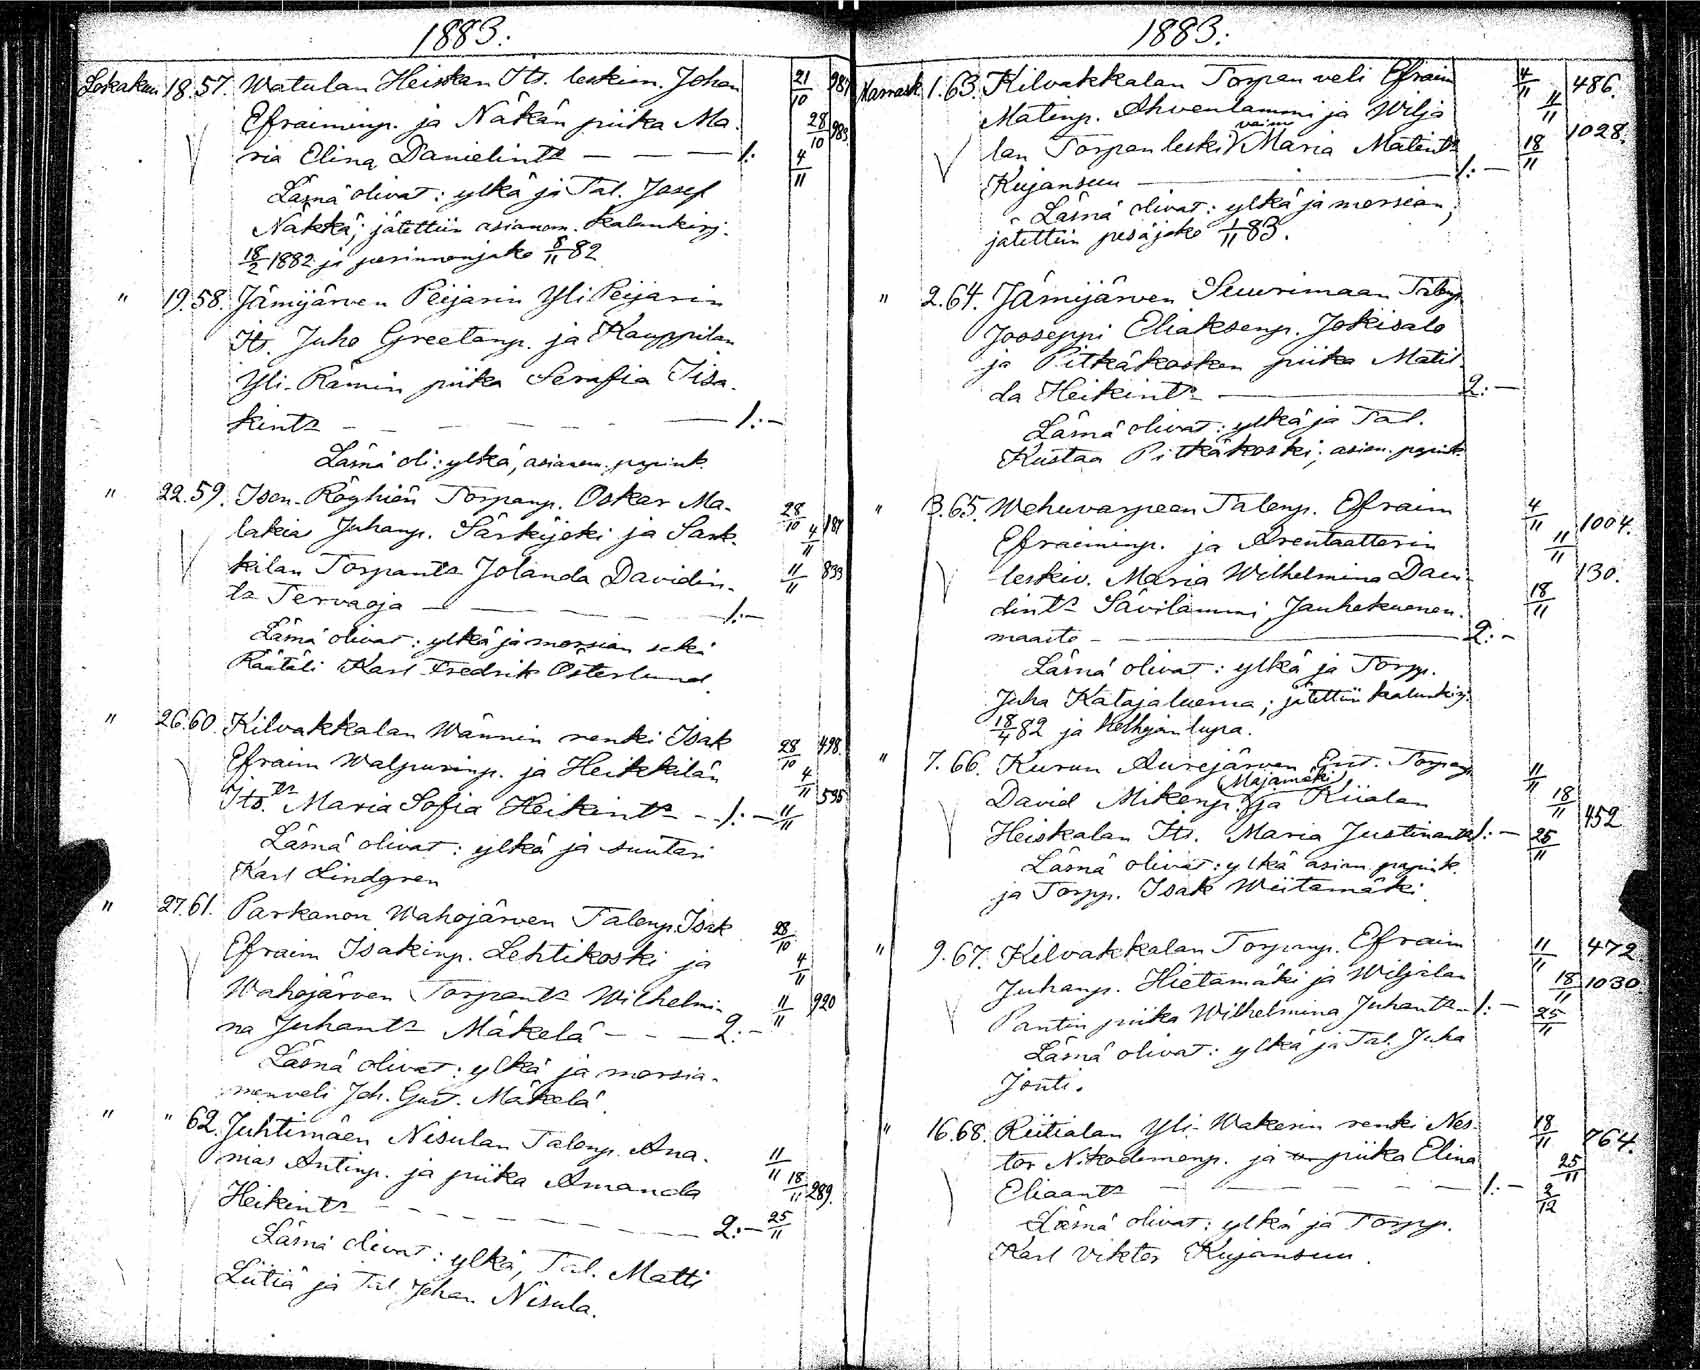 1883.
Lokakuu 18. 57. Watulan Heiskan Its. leskim. Johan 21/10 981
Efraiminp. ja Näkän piika Ma- 28/10 983
ria Elina Danielintr — — — 1:— 4/11
Läsnä olivat: ylkä ja Tal. Josef
Näkkä; jätettiin asianom. kaluukirj.
18/2 1882 ja perinnonjako 8/11 82.
" 19. 58. Jämijärven Peijarin Yli Peijarin
Its. Juho Greetanp. ja Kauppilan
Yli-Rämin piika Serafia Iisa-
kintr — — — — — 1:—
Läsnä oli: ylkä, asianom. papink.
" 22. 59. Ison-Röyhiön Torpanp. Oskar Ma- 28/10 181
lakias Juhanp. Särkijoki ja Sark- 4/11
kilan Torpantr Jolanda Davidin- 11/11 833
tr Tervaoja — — — 1:—
Läsnä olivat: ylkä ja morsian sekä
Räätäli Karl Fredrik Österlund.
" 26. 60. Kilvakkalan Wännin renki Isak 28/10 498.
Efraim Walpurinp. ja Heikkilän 4/11
Its.tr Maria Sofia Heikintr — 1:— 11/11 535
Läsnä olivat: ylkä ja suutari
Karl Lindgren
" 27. 61. Parkanon Wahojärven Talonp. Isak 28/10
Efraim Isakinp. Lehtikoski ja 4/11
Wahojärven Torpantr Wilhelmi- 11/11 920
na Juhantr Mäkelä — — — 2:—
Läsnä olivat: ylkä ja morsia-
menveli Joh. Gust. Mäkelä.
" " 62. Juhtimäen Nisulan Talonp. Ana-
nias Antinp. ja piika Amanda 11/11 18/11 289.
Heikintr — — — — — 2:— 25/11
Läsnä olivat: ylkä, Tal. Matti
Liitiä ja Tal. Johan Nisula.
1883.
Marrask. 1. 63. Kilvakkalan Torpan veli Efraim 4/11 486.
Matinp. Ahvenlammi ja Wilja 11/11
lan Torpan leski vaimo Maria Matintr 18/11 1028.
Kujansuu — — 1:—
Läsnä olivat: ylkä ja morsian;
jätettiin pesäjako 1/11 83.
" 2. 64. Jämijärven Suurimaan Talonp
Jooseppi Eliaksenp. Jokisalo
ja Pitkäkosken piika Matil-
da Heikintr — 2:—
Läsnä olivat: ylkä ja Tal.
Kustaa Pitkäkoski; asian. papink.
" 3. 65. Wehuvarpeen Talonp. Efraim 4/11 1004.
Efraiminp. ja Arentaatterin 11/11
leskiv. Maria Wilhelmina Davi- 130.
dintr Savilammi, Jauhekuonen- 18/11
maasto — — 2:—
Läsnä olivat: ylkä ja Torpp.
Juha Katajaluoma; jätettiin kaluukirj.
18/4 82 ja holhojan lupa.
" 7. 66. Kurun Aurejärven Ent. Torpanp. 11/11
David Mikenp. Majamäki ja Riialan 18/11
Heiskalan Its. Maria Justinantr 1:— 25/11 452
Läsnä olivat: ylkä asian. papink.
ja Torpp. Isak Wiitamäki.
" 9. 67. Kilvakkalan Torpanp. Efraim 11/11 472
Juhanp. Hietamäki ja Wiljalan 18/11 1030
Pantin piika Wilhelmina Juhantr — 1:— 25/11
Läsnä olivat: ylkä ja Tal. Juha
Jonti.
" 16. 68. Riitialan Yli-Wakerin renki Nes- 18/11 764.
tor Nikodemonp. ja piika Elina 25/11
Eliaantr — — — — — 1:— 2/12
Läsnä olivat: ylkä ja Torpp.
Karl Viktor Kujansuu.